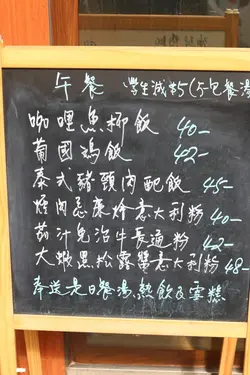 午餐 學生減$5(不包餐湯
咖哩魚柳飯 40-
葡國鷄飯 42-
泰式豬頸肉配飯 45-
煙肉忌廉燴意大利粉 40-
茄汁免治牛長通粉 42-
大蝦黑松露醬意大利粉 48
奉送是日餐湯,熱飲及雪糕